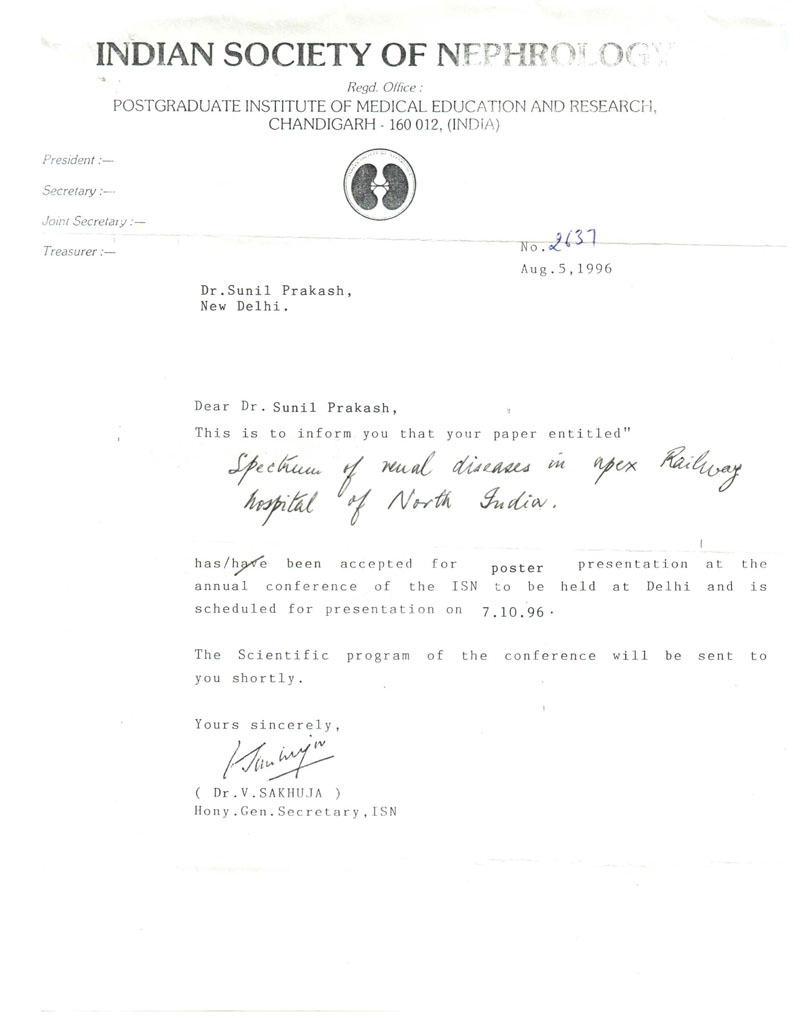 INDIAN SOCIETY OF NEPHROLOGY
Regd. Office :
POSTGRADUATE INSTITUTE OF MEDICAL EDUCATION AND RESEARCH,
CHANDIGARH - 160 012, (INDIA)
President :—
Secretary :—
Joint Secretary :—
Treasurer :—
No. 2637
Aug.5,1996
Dr.Sunil Prakash,
New Delhi.
Dear Dr. Sunil Prakash,
This is to inform you that your paper entitled"
Spectrum of renal diseases in apex Railway
hospital of North India.
has/have been accepted for poster presentation at the
annual conference of the ISN to be held at Delhi and is
scheduled for presentation on 7.10.96.
The Scientific program of the conference will be sent to
you shortly.
Yours sincerely,
( Dr.V.SAKHUJA )
Hony.Gen.Secretary,ISN